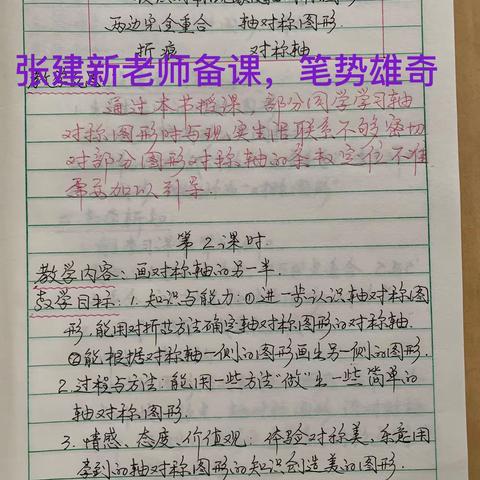 两边完全重合 轴对称图形.
折痕 对称轴
张建新老师备课，笔势雄奇
通过本节授课，部分同学学习轴
对称图形时与现实生活联系不够密切
对部分图形对称轴的条数定位不准
需要加以引导.
第2课时.
教学内容：画对称轴的另一半.
教学目标：1.知识与能力：①进一步认识轴对称图
形,能用对折方法确定轴对称图形的对称轴.
②能根据对称轴一侧的图形画出另一侧的图形.
2.过程与方法：能用一些方法“做”出一些简单的
轴对称图形.
3.情感、态度、价值观：体验对称美，乐意用
学到的轴对称图形的知识创造美的图形.